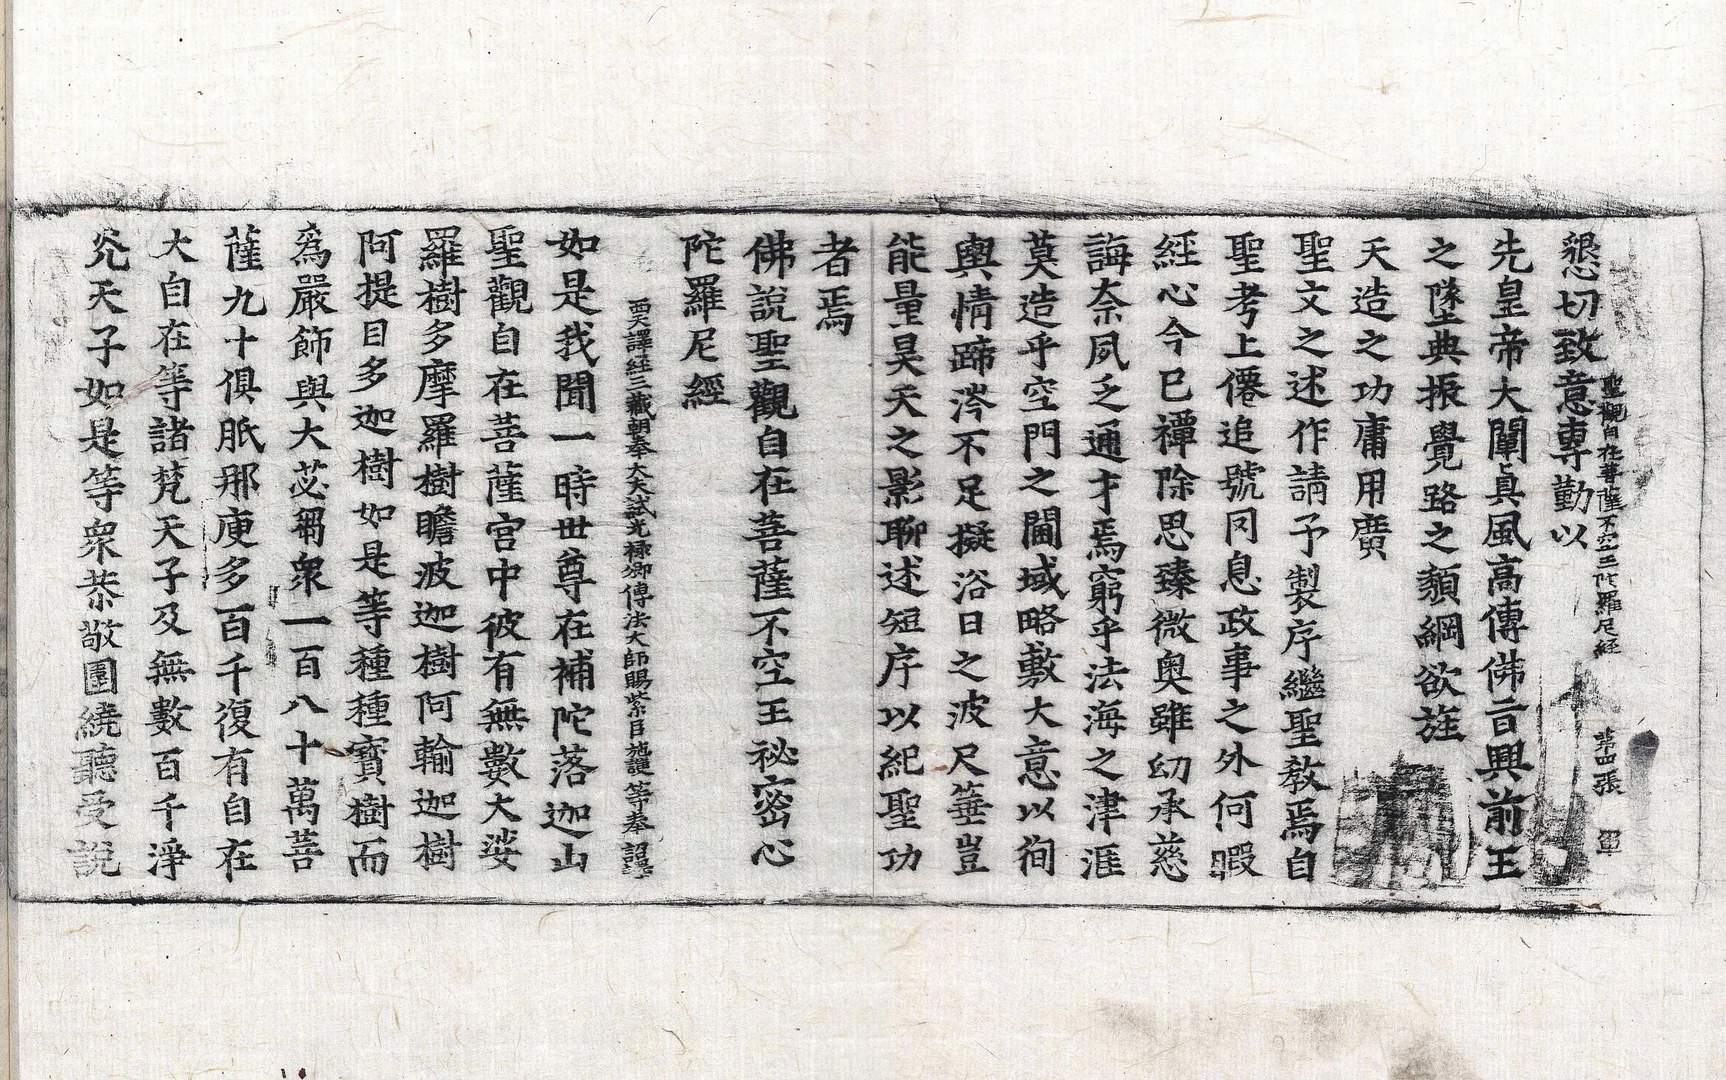 懇切致意專勤以
聖觀自在菩薩不空王陁羅尼経 第四張 軍
先皇帝大闡真風高傳佛旨興前王
之墜典振覺路之頽綱欲旌
天造之功庸用廣
聖文之述作請予製序繼聖教焉自
聖考上僊追號罔息政事之外何暇
經心今巳禫除思臻微奧雖幼承慈
誨奈夙乏通才焉窮乎法海之津涯
莫造乎空門之閫域略敷大意以徇
輿情蹄涔不足擬浴日之波尺箠豈
能量昊天之影聊述短序以紀聖功
者焉
佛說聖觀自在菩薩不空王祕密心
陀羅尼經
西天譯経三藏朝奉大夫試光祿卿傳法大師賜紫臣施護等奉 詔譯
如是我聞一時世尊在補陀落迦山
聖觀自在菩薩宮中彼有無數大娑
羅樹多摩羅樹瞻波迦樹阿輸迦樹
阿提目多迦樹如是等種種寶樹而
爲嚴飾與大苾芻衆一百八十萬菩
薩九十俱胝那庾多百千復有自在
大自在等諸梵天子及無數百千淨
光天子如是等衆恭敬圍繞聽受說